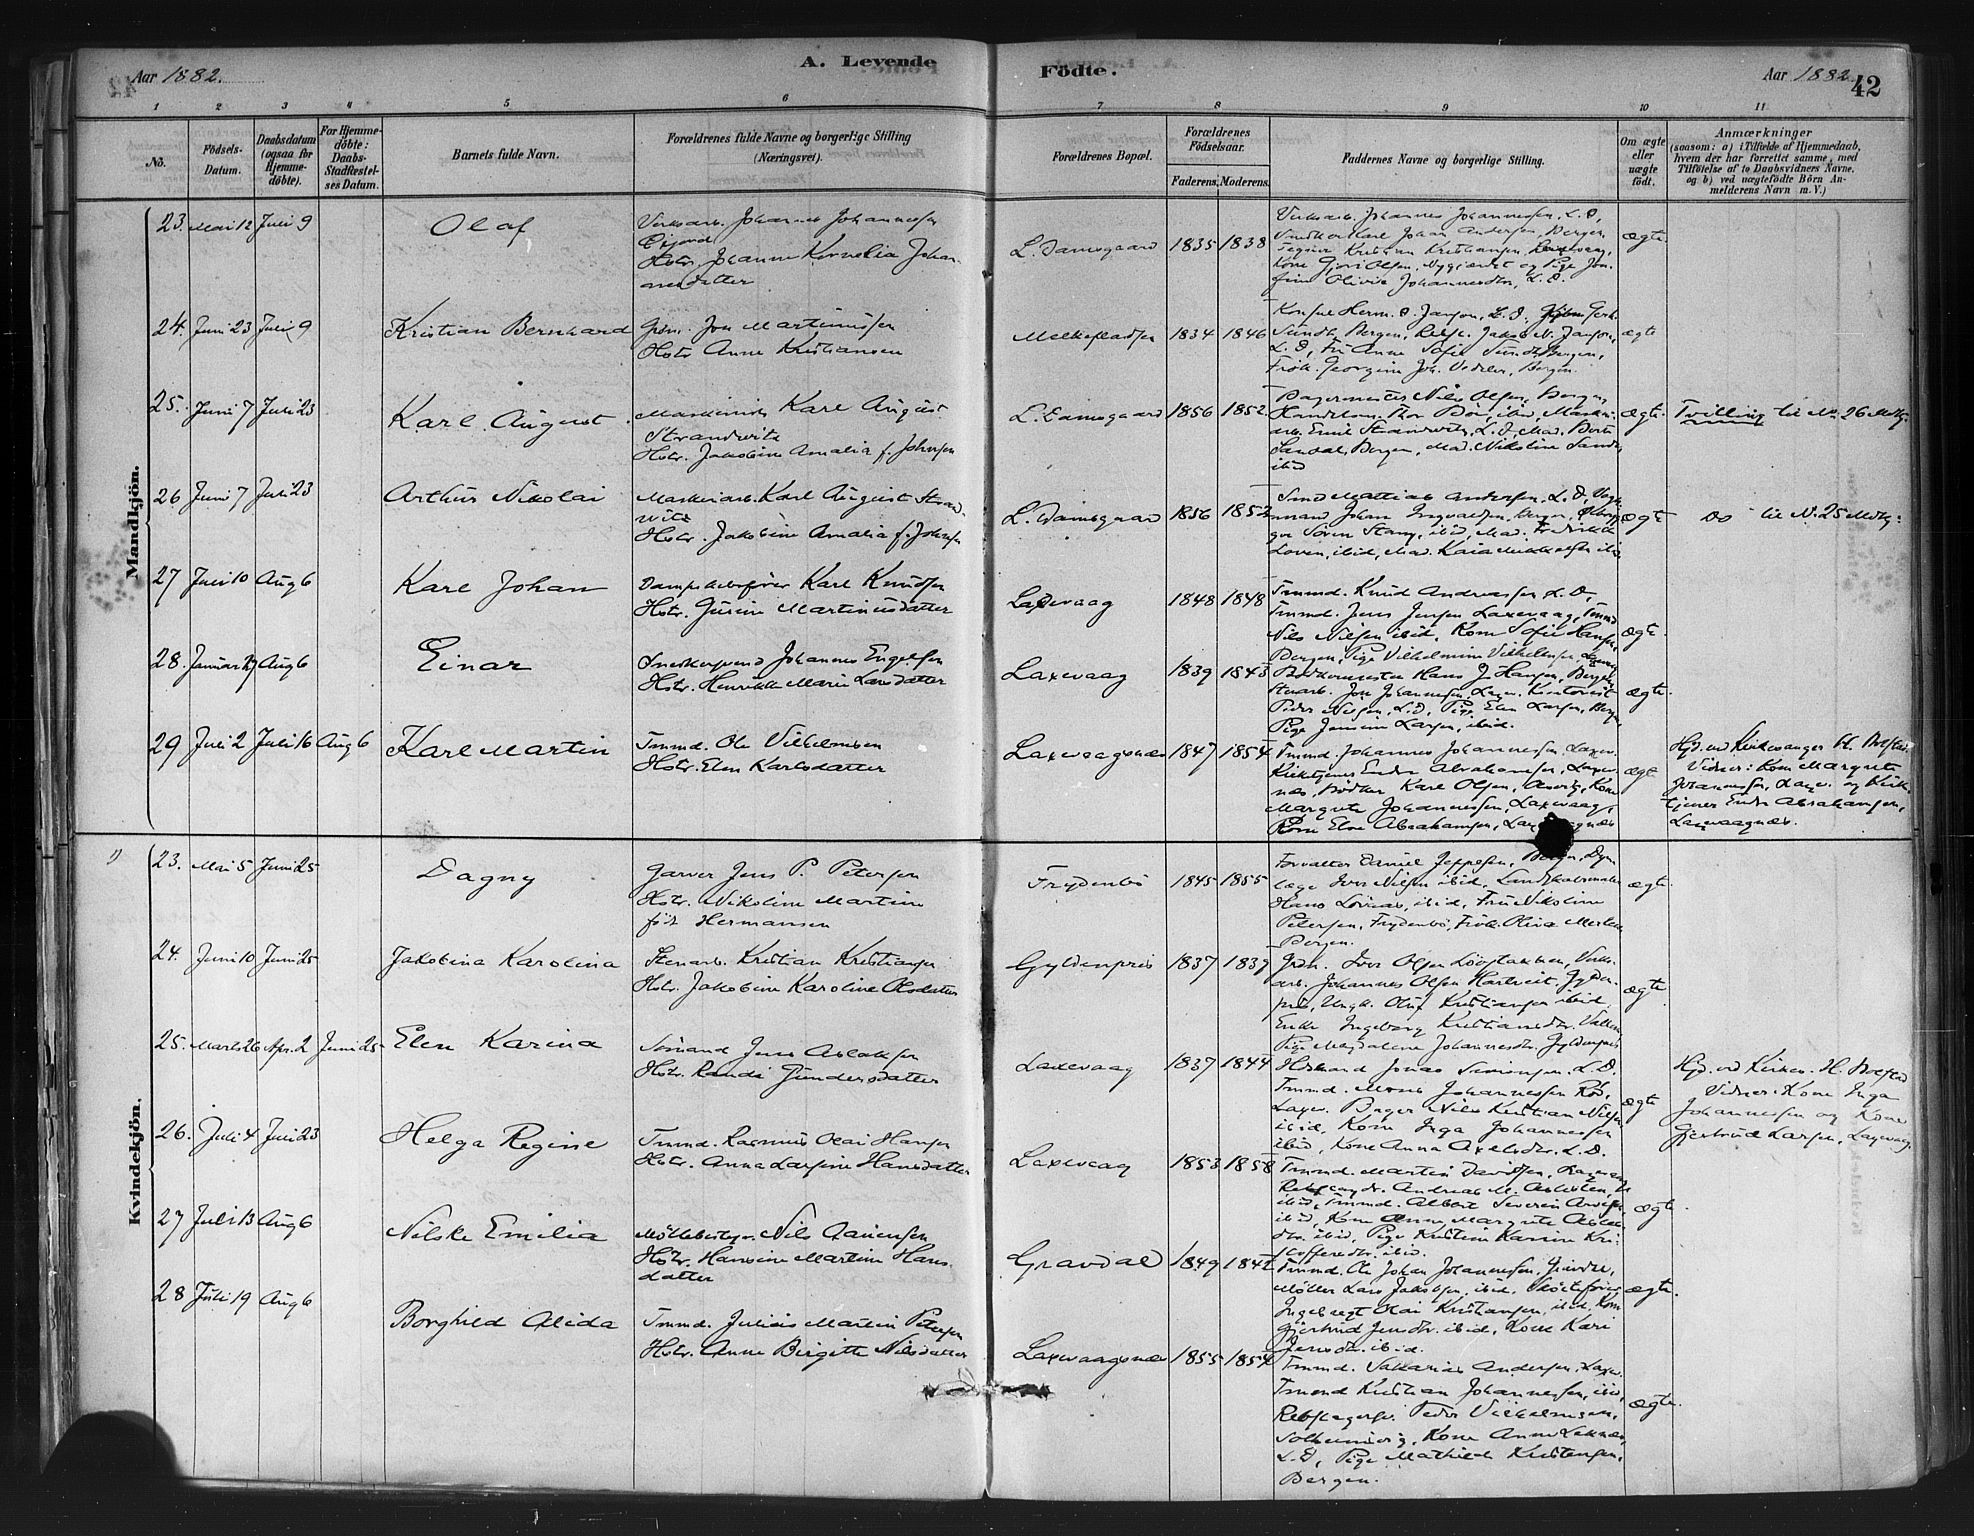 Aar 1882.
A. Levende
Födte.
Aar 1882.
42
1 2 3 4 5 6 7 8 9 10 11
No.
Födsels-
Datum.
Daabsdatum
(ogsaa for
Hjemme-
döbte).
For Hjemme-
döbte:
Daabs-
Stadfæstel-
ses Datum.
Barnets fulde Navn.
Forældrenes fulde Navne og borgerlige Stilling
(Næringsvei).
Forældrenes Bopæl.
Forældrenes
Födselsaar.
Faderens. Moderens.
Faddernes Navne og borgerlige Stilling.
Om ægte
eller
uægte
födt.
Anmærkninger
(saasom: a) i Tilfælde af Hjemmedaab,
hvem der har forrettet samme, med
Tilföielse af to Daabsvidners Navne,
og b) ved uægtefödte Börn An-
melderens Navn m. V.)
Mandkjön.
23. Mai 12 Juli 9
Olaf
Verksarb. Johannes Johannessen
Hstr. Johanne Kornelia Johan-
nesdatter
L. Damsgaard 1835 1838
Verksarb. Johannes Johannessen, L. D,
Karl Johan Andersen, Bergen,
Kristian Kristiansen, Laxevaag,
Kone Gjøri Olsen, Nygjærdet og Pige Jo-
Olivia Johannesdtr, L. D.
ægte
24. Juni 23 Juli 9
Kristian Bernhard
Jon Martinussen
Hstr Anne Kristiansen
Melkepladsen 1834 1846
Konsul Herm. D. Janson, L. D,
Sundt, Bergen, Jakob N. Janson,
L. D, Fru Anne Sofie Sundt, Bergen,
Frøk. Georgine Joh. Vedeler, Bergen.
ægte
25. Juni 7 Juli 23
Karl August
Maskinarb. Karl August
Strandvitz
Hstr. Jakobine Amalia f. Johnsen
L. Damsgaard 1856 1852
Bagermester Nils Olsen, Bergen,
ibid, Maskin-
arb. Emil Strandvitz, L. D, Mad. Berte
Sandal, Bergen, Mad. Nikoline
ibid
ægte
Tvilling til No. 26 Mdkj.
26 Juni 7 Juli 23
Arthur Nikolai
Maskinarb. Karl August Strand-
vitz
Hstr. Jakobine Amalia f. Johnsen
L. Damsgaard 1856 1852
Smed Mattias Andersen, L. D,
Johan Ingvaldsen, Bergen,
Søren Stang, ibid, Mad. Fredrikke
Loven, ibid, Mad. Kaia
ægte
Do til N. 25 Mdkj.
27 Juli 10 Aug 6
Karl Johan
Karl Knudsen
Hstr. Gurine Martinusdatter
Laxevaag 1848 1848
Tmmd. Knud Andreassen L. D,
Tmmd. Jens Jensen Laxevaag, Tmmd
Nils Nilsen ibid, Kone Sofie Hansen,
Bergen, Pige Vilhelmine Vilhelmsen, Laxevaag
ægte
28. Januar Aug 6
Einar
Snedkersvend Johannes Engelsen
Hstr. Henrikke Marie Larsdatter
Laxevaag 1839 1843
Bødkermester Hans J. Hansen, Bergen,
Jon Johannesen, Laxev. Kontorist
Peder Nilsen, L. D, Pige Elen Larsen, Bergen,
Pige Jensine Larsen, ibid.
ægte.
29 Juli 2 Juli 16 Aug 6
Karl Martin
Tmmd. Ole Vilhelmsen
Hstr. Elen Karlsdatter
Laxevaagsnæs 1847 1854
Tmmd. Johannes Johannessen, Laxev.
Kirketjener Endre Abrahamsen, Laxev-
næs, Bødker Karl Olsen, Kone
Margrete Johannessen, Laxevaag,
Kone Elen Abrahamsen, Laxevaagnæs
ægte
Hjd. ved Kirkesanger H. Bolstad.
Vidner: Kone Margrete
Johannessen, Laxev. og Kirke-
tjener Endre Abrahamsen,
Laxevaagnæs.
Kvindekjön.
23. Mai 5 Juni 25
Dagny
Garver Jens P. Petersen
Hstr. Nikoline Martine
født Hermansen
Frydenbø 1845 1855
Forvalter Daniel Jeppesen, Bergen, Dyr-
læge Iver Nilsen ibid,
Hans ibid, Fru Nikoline
Petersen, Frydenbø, Frøk. Oliva
Bergen.
ægte
24. Juni 10 Juni 25
Jakobina Karolina
Stenarb. Kristian Kristiansen
Hstr. Jakobine Karoline Olsdatter
Gyldenpris 1837 1839
Iver Olsen Løvstakken, Verks-
arb. Johannes Olsen Hartveit, Gylden-
pris, Ungk. Oluf Kristiansen ibid.
Enke Ingeborg Kristiansdtr.
Pige Magdalene Johannesdtr. Gyldenpris
ægte.
25. Marts 26 Apr. 2 Juni 25
Elen Karina
Sømand Jens Aslaksen
Hstr. Randi Gundersdatter
Laxevaag 1837 1844
Jonas Simonsen, L. D.
Tmmd. Mons Johannessen
Laxev. Bager Nils Kristian Nilsen
ibid, Kone Inga Johannessen
ibid, Kone Anna Axelsdtr. L. D.
ægte
Hjd. ved Kirkes. H. Bolstad
Vidner: Kone Inga
Johannessen og Kone
Gjertrud Larsen, Laxevaag.
26. Juli 4 Juli 23
Helga Regine
Tmmd. Rasmus Olai Hansen
Hstr. Anna Larsine Hansdatter
Laxevaag 1853 1858
Tmmd. Martin Davidsen, Laxevaag
Andreas M.
ibid, Tmmd. Albert Severin
ibid, Kone Anne Margrete
ibid, Pige Kristine Karine Kri-
stoffersdtr. ibid.
ægte.
27 Juli 13 Aug 6
Nilske Emilia
Nils
Hstr. Hansine Martine Hans-
datter
Gravdal 1849
Tmmd. Ole Johan Johannessen,
Møller Lars Jakobsen, ibid,
Ingebregt Olai Kristiansen, ibid, Kone
Gjertrud Jensdtr. ibid, Kone Kari
ibid.
ægte.
28 Juli 19 Aug 6
Borghild Alida
Tmmd. Julius Martin Petersen
Hstr. Anne Birgitte Nilsdatter
Laxevaagsnæs 1855 1854
Tmmd. Sakarias Andersen, Laxev.
Tmmd Kristian Johannessen, ibid,
Peder Vilhelmsen,
Solheimsvig, Kone Anne
L. D, Pige Mathilde Kristensen,
Bergen.
ægte.